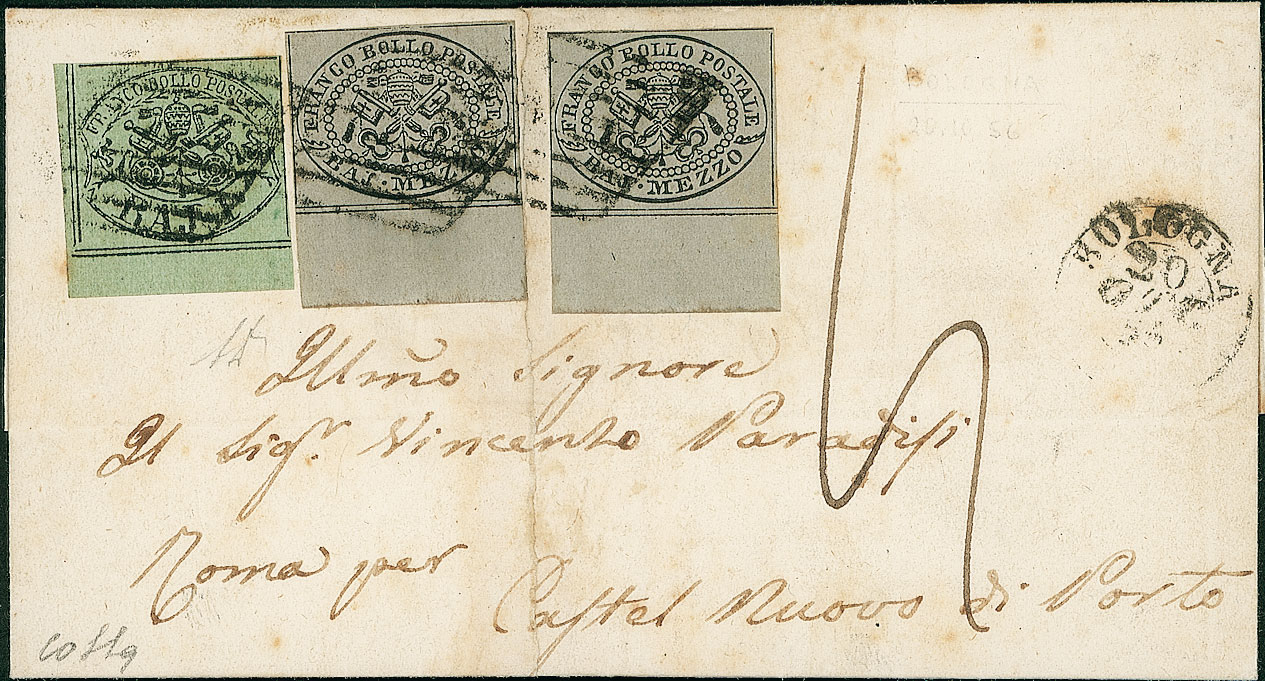 FRANCO BOLLO POSTALE
BAJ.
FRANCO BOLLO POSTALE
BAJ. MEZZO
FRANCO BOLLO POSTALE
BAJ. MEZZO
BOLOGNA
20
Illmo Signore
Il Sigr. Vincenzo Paradisi
Roma per
Castel Nuovo di Porto